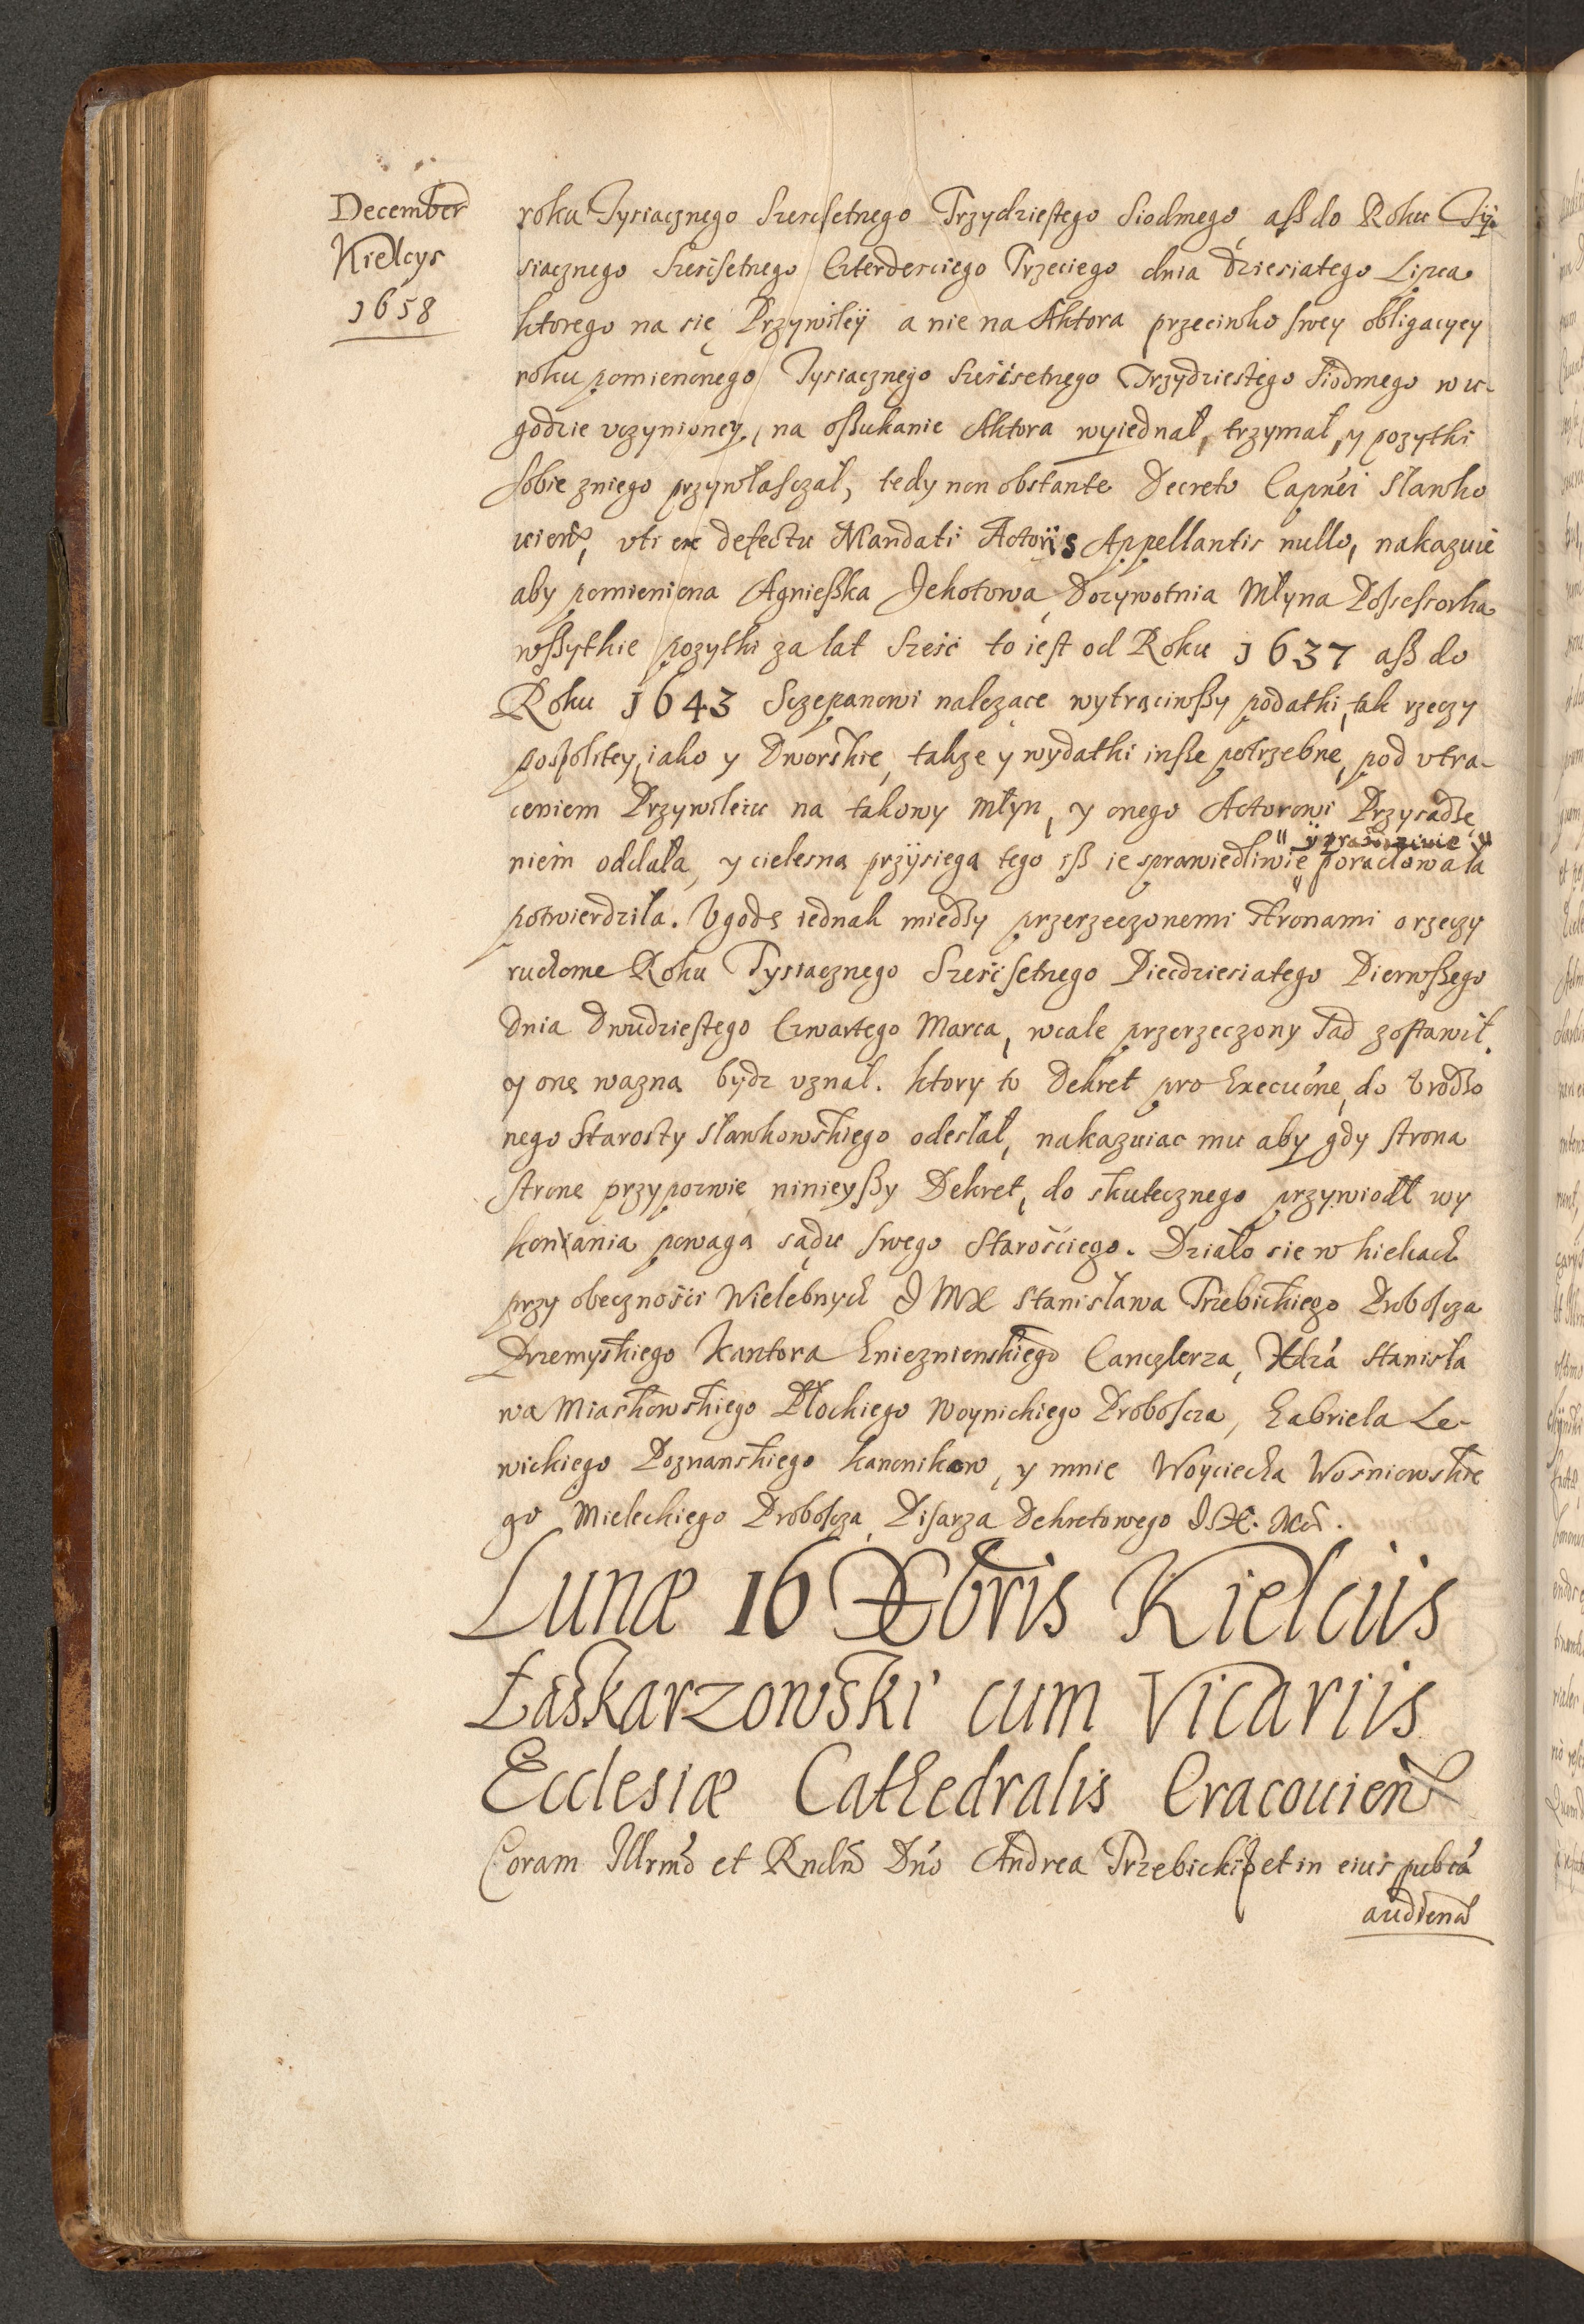 December
Kielcys
1658
roku Tysiącznego Szescsetnego Trzydziestego Siodmego aß do Roku Ty-
siącznego Szescsetnego Czterdzesciego Trzeciego dnia dziesiatego Lipca
ktorego na się Przywiley a nie na Aktora przeciwko swey obligacyey
roku pomienonego Tysiącznego Szescsetnego Trzydziestego Siodmego w u-
godzie vczynioney, na oßukanie Aktora wyiednał, trzymał, y pozytki
sobie zniego przywłasczał, tedy non obstante Decreto Capnei Sławko
uien, vti ex defectu Mandati Actoris Appellantis nullo, nakazuie
aby pomieniona Agnießka Jekotowa, Dozywotnia Młyna Possessorka
wßytkie pozytki za lat Szesc to iest od Roku 1637 aß do
Roku 1643 Sczepanowi nalezące wytrąciwßy podatki, tak rzeczy
pospolitey, iako y Dworskie, takze y wydatki inße potrzebne, pod vtra-
ceniem Przywileiu na takowy Młyn, y onego Actorowi Przysadze
niem oddała, y cielesną przysiegą tego iß ie sprawiedliwie porachowała
potwierdziła. Vgodę iednak miedzy przerzeczonemi stronami o rzeczy
ruchome Roku Tysiącznego Szescsetnego Piecdziesiatego Pierwßego
dnia Dwudziestego Czwartego Marca, wcale przerzeczony Sąd zostawił
y onę wazną bydz vznał. ktory to Dekret pro Executne, do Vrodzo
nego Starosty Sławkowskiego odesłał, nakazuiac mu aby gdy strona
strone przypozwie ninieyßy Dekret, do skutecznego przywiodł wy
konania powagą sądu swego Starosciego. Działo sie w kielcach
przy obecznosci Wielebnych JMX Stanisława Trzebickiego Proboscza
Przemyskiego Kantora Gnieznienskiego Canczlerza, Xdza Stanisła
wa Miaskowskiego Płockiego Woynickiego Proboscza, Gabriela Le-
wickiego Poznanskiego kanonikow, y mnie Woyciecha Wosniowskie
go Mieleckiego Proboscza, Pisarza Dekretowego J.X. Mci.
Lunæ 16 Xbris Kielciis
Łaskarzowski cum Vicariis
Ecclesiæ Cathedralis Cracouien
Coram Illrmo et Rndno Dno Andrea Trzebicki Epo et in eius publca
audiena